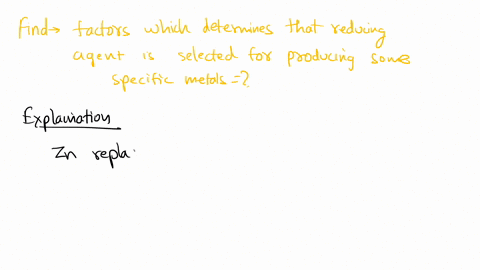 Find→ factors which determines that reducing
agent is selected for producing some
specific metals=?
Explaination
Zn repla